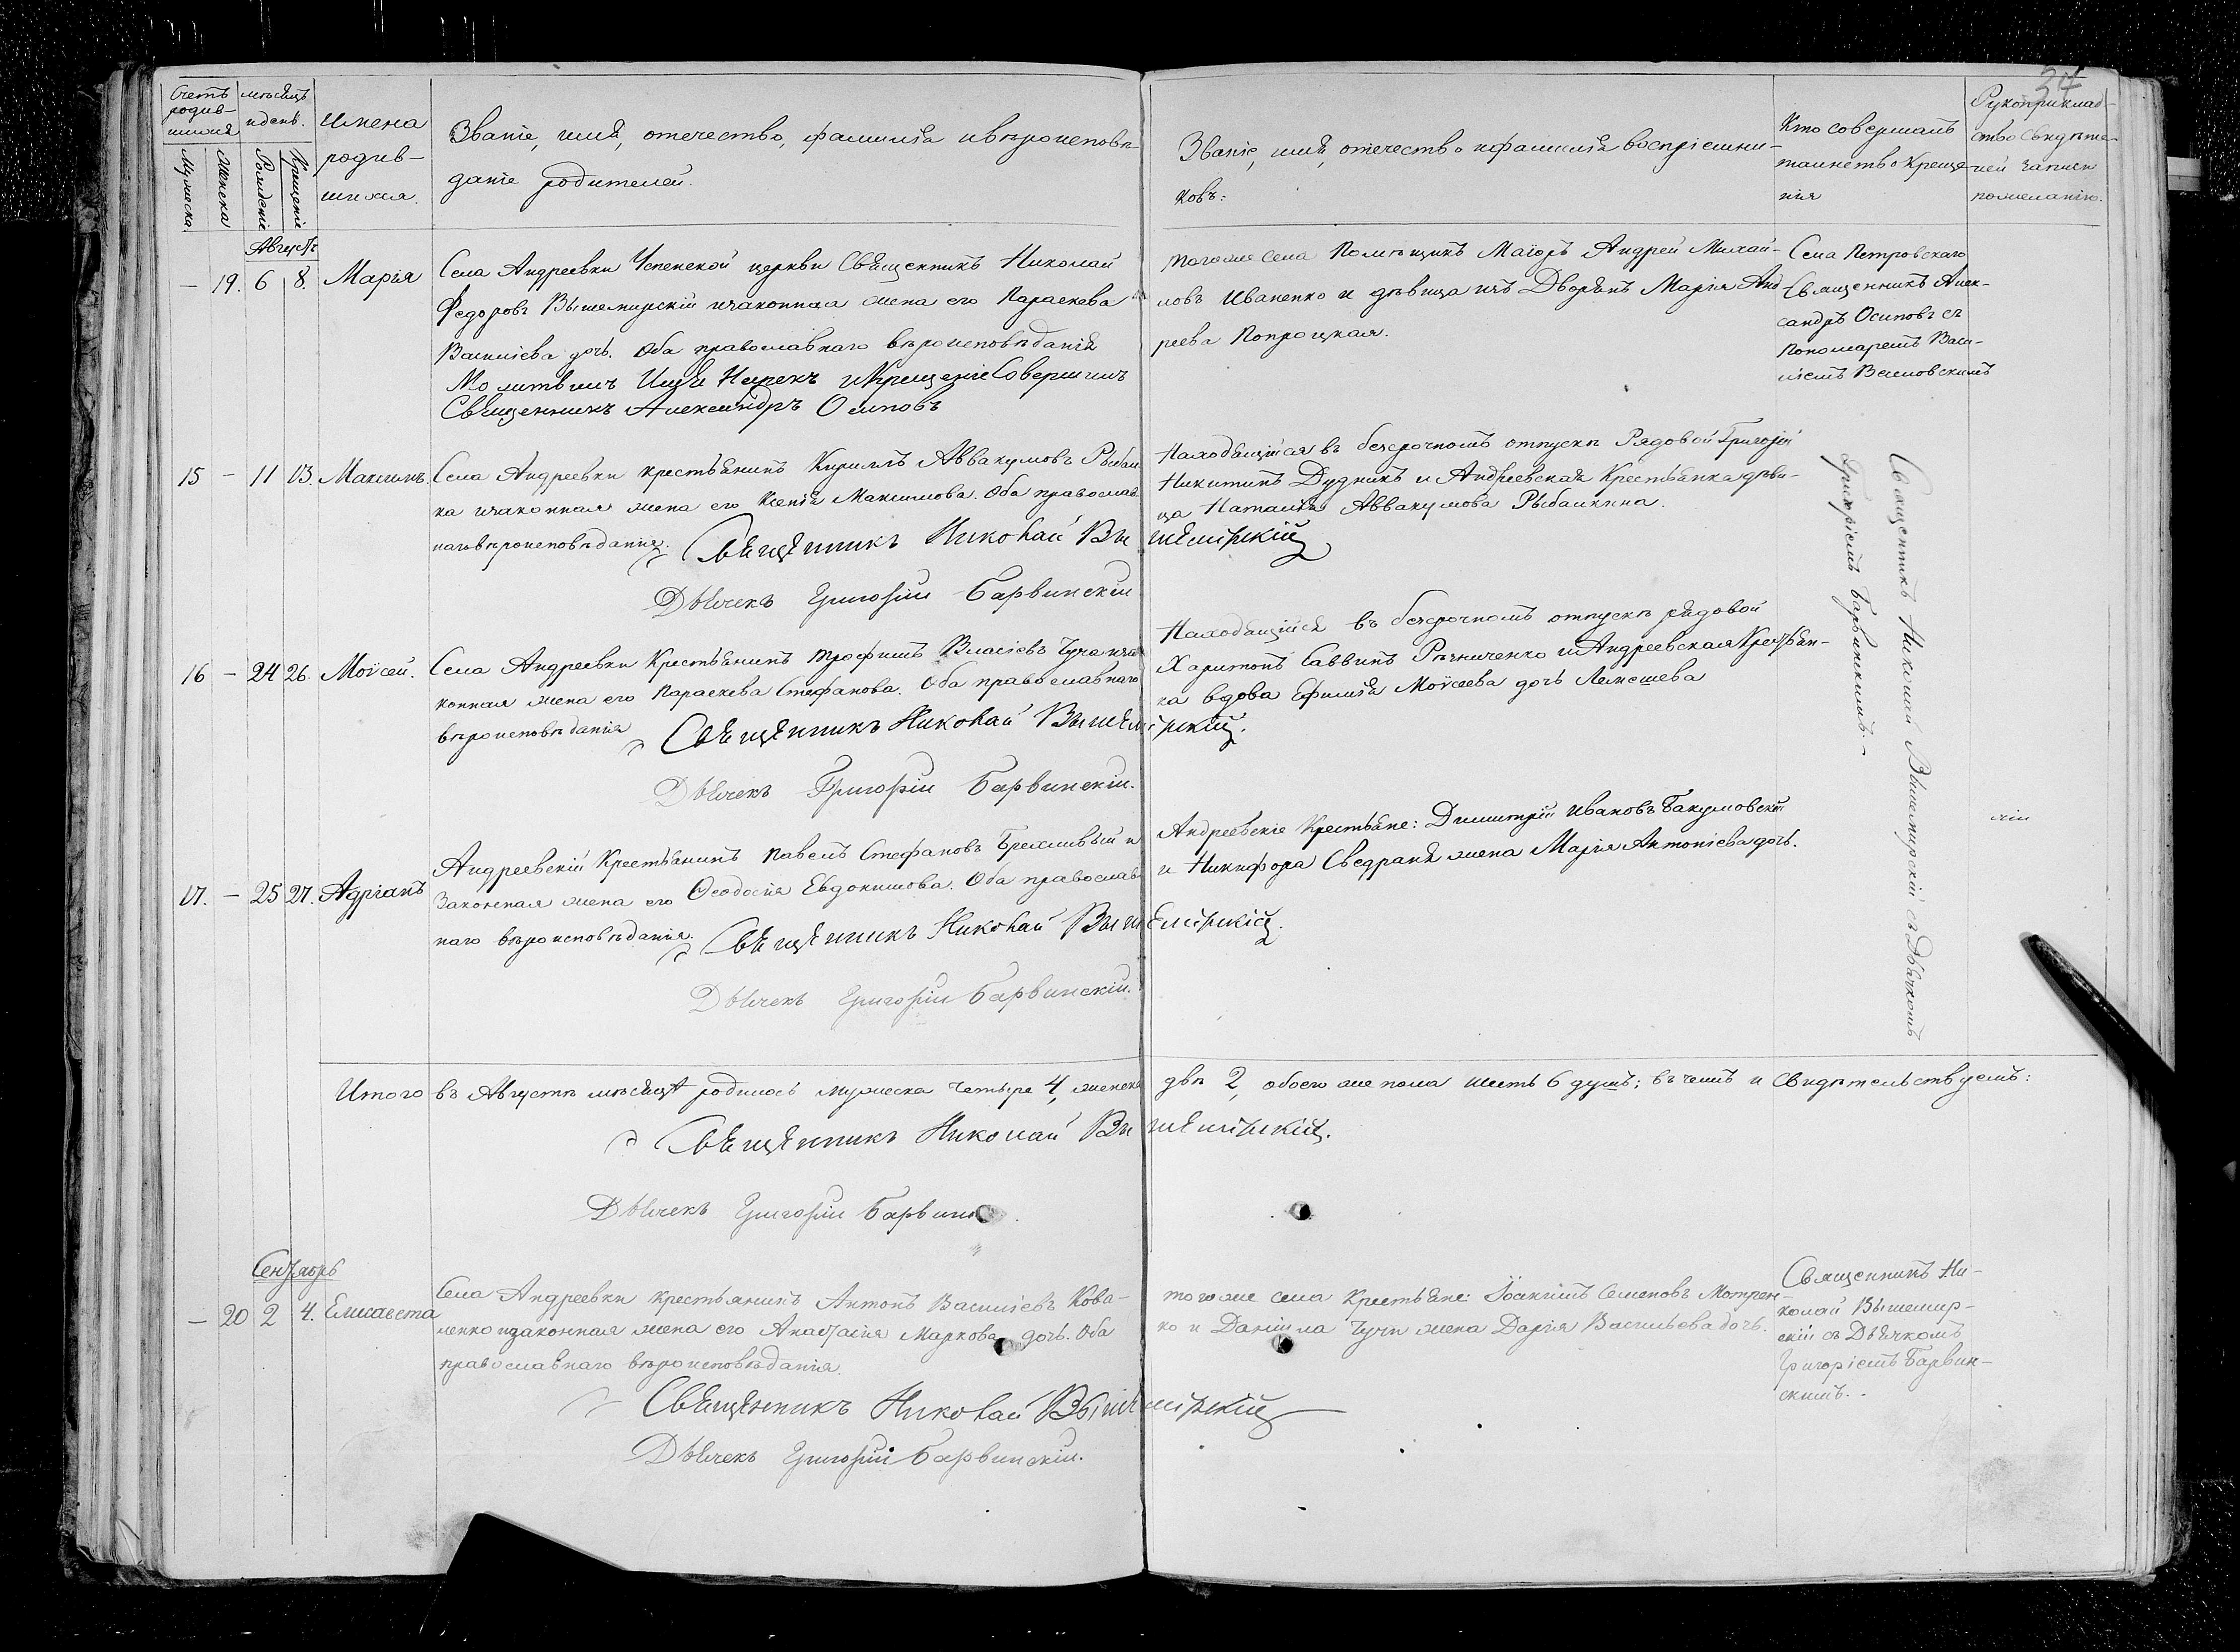 34
Счетъ родив-
шихся
мѣсяцъ
и день.
Мужеска
Женска
Рожденіе
Крещеніе
Имена
родив-
шихся.
Званіе, имя, отечество, фамилія и вѣроисповѣ-
даніе родителей.
Званіе, имя, отечество и фамилія воспріемни-
ковъ:
Кто совершалъ
таинство Креще-
нія
Рукоприклад-
ство свидѣте-
лей записи
по желанію.
Августъ
— 19. 6 8. Марія
Села Андреевки Успенской церкви Священникъ Николай
Федоровъ Вышемирскій и законная жена его Параскева
Василіева дочь. Оба православнаго вѣроисповѣданія
Молитвилъ Имя Нарекъ и Крещеніе Совершилъ
Священникъ Александръ Осиповъ
тогоже села Помѣщикъ Маіоръ Андрей Михай-
ловъ Иваненко и дѣвица изъ Дворянъ Марія Анд-
реева Попроцкая.
Села Петровскаго
Священникъ Алек-
сандръ Осиповъ съ
Пономаремъ Васи-
ліемъ
15 — 11 13. Максимъ.
Села Андреевки крестьянинъ Кириллъ Аввакумовъ Рыбал-
ка и законная жена его Ксенія Максимова. Оба православ-
наго вѣроисповѣданія.
Священникъ Николай Вышемірскій
Дьячекъ Григорій Барвинскій
Находящійся въ безсрочномъ отпускѣ Рядовой Григорій
Никитинъ Дудникъ и Андреевская Крестьянка дѣви-
ца Наталія Аввакумова Рыбалкина.
Священникъ Николай Вышемирскій съ Дьячкомъ
Григоріемъ Барвинскимъ. —
16 — 24 26. Моѵсей.
Села Андреевки Крестьянинъ Трофимъ Власіевъ Чуча и за-
конная жена его Параскева Стефанова. Оба православнаго
вѣроисповѣданія
Священникъ Николай Вышемірскій.
Дьячекъ Григорій Барвинскій.
Находящійся въ безсрочномъ отпускѣ рядовой
Харитонъ Саввинъ Рѣзниченко и Андреевская Крестьян-
ка вдова Ефимія Моѵсеева дочь Лемешева
17. — 25 27. Адріанъ
Андреевскій Крестьянинъ Павелъ Стефановъ Брехливый и
Законная жена его Ѳеодосія Евдокимова. Оба православ-
наго вѣроисповѣданія.
Священникъ Николай Вышемірскій.
Дьячекъ Григорій Барвинскій.
Андреевскіе Крестьяне: Димитрій Ивановъ Бакумовскій
и Никифора жена Марія Антоніева дочь.
Итого въ Августѣ мѣсяцѣ родилось мужеска четыре 4, женска двѣ 2, обоего же пола шесть 6 душъ; въ чемъ и свидѣтельствуемъ:
Священникъ Николай Вышемірскій.
Дьячекъ Григорій
Сентябрь
— 20 2 4. Елисавета
Села Андреевки крестьянинъ Антонъ Василіевъ Кова-
ленко и законная жена его Анастасія Маркова дочь. Оба
православнаго вѣроисповѣданія.
Священникъ Николай Вышемірскій
Дьячекъ Григорій Барвинскій.
тогоже села Крестьяне: Іоакимъ Семеновъ Мотрен-
ко и Даніила Чучи жена Дарія Васильева дочь.
Священникъ Ни-
колай Вышемир-
скій съ Дьячкомъ
Григоріемъ Барвин-
скимъ. -